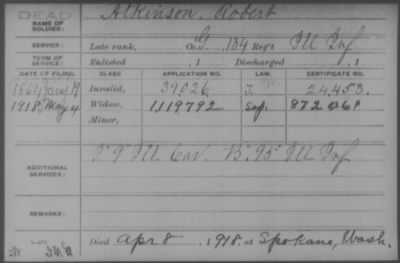 DEAD
NAME OF SOLDIER: Atkinson, Robert
SERVICE: Late rank, Co. G, 134 Reg't Ill Inf
TERM OF SERVICE: Enlisted , 1 Discharged , 1
DATE OF FILING. CLASS. APPLICATION NO. LAW. CERTIFICATE NO.
1864 Invalid, 39,326 24,453.
1918, May 4 Widow, 1,119,792 Sep. 872061
Minor,
ADDITIONAL SERVICES: Ill Cav. 95 Ill Inf
REMARKS:
Died Apr 8, 1918, at Spokane, Wash.